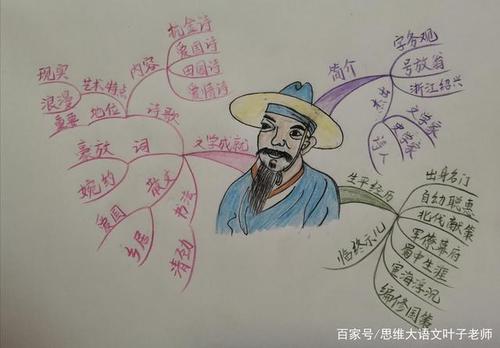 文学成就
诗歌
内容
抗金诗
爱国诗
田园诗
爱情诗
艺术特点
现实
浪漫
地位
重要
词
豪放
婉约
散文
爱国
乡居
书法
清劲
简介
字务观
号放翁
浙江绍兴
杰出
文学家
史学家
诗人
生平经历
出身名门
自幼聪惠
北伐献策
军僚幕府
蜀中生涯
宦海浮沉
编修国策
临终示儿
百家号/思维大语文叶子老师